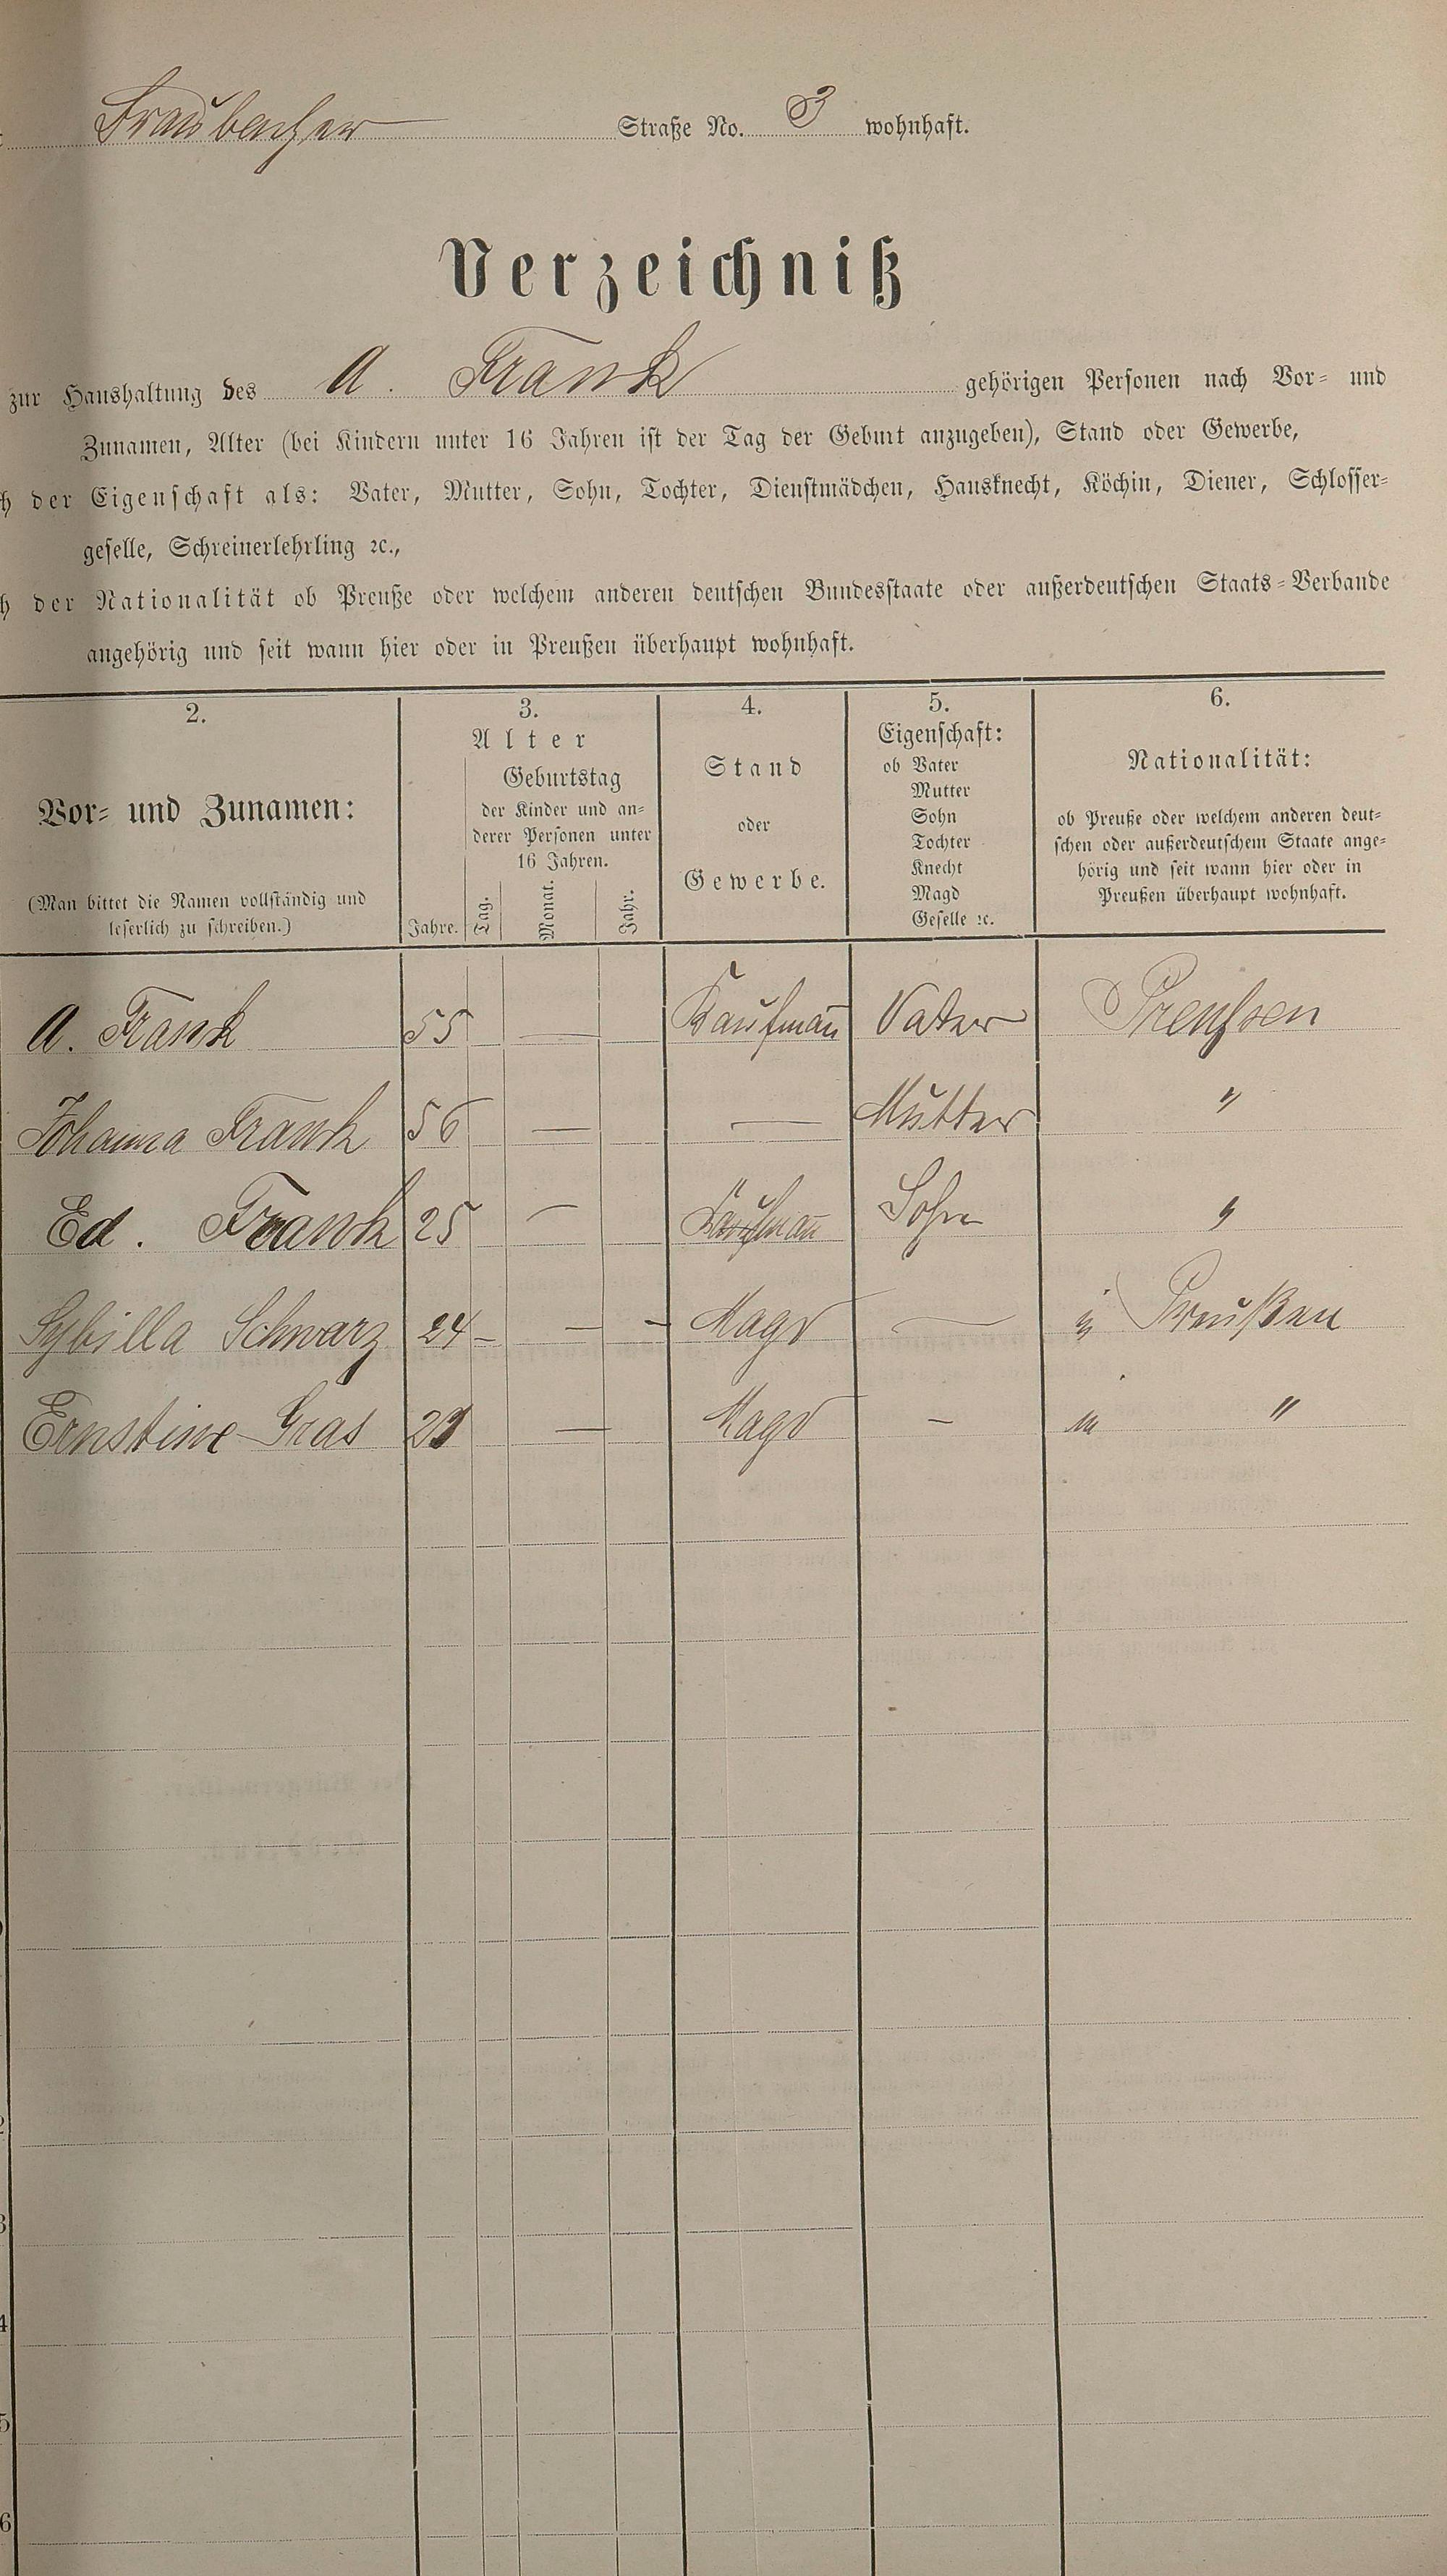 Straße No. 3 wohnhaft.
Verzeichniß
zur Haushaltung des A. Frank gehörigen Personen nach Vor- und
Zunamen, Alter (bei Kindern unter 16 Jahren ist der Tag der Geburt anzugeben), Stand oder Gewerbe,
h der Eigenschaft als: Vater, Mutter, Sohn, Tochter, Dienstmädchen, Hausknecht, Köchin, Diener, Schlosser-
geselle, Schreinerlehrling ꝛc.,
h der Nationalität ob Preuße oder welchem anderen deutschen Bundesstaate oder außerdeutschen Staats-Verbande
angehörig und seit wann hier oder in Preußen überhaupt wohnhaft.
2.
Vor- und Zunamen:
(Man bittet die Namen vollständig und
leserlich zu schreiben.)
3.
Alter
Jahre.
Geburtstag
der Kinder und an-
derer Personen unter
16 Jahren.
Tag.
Monat.
Jahr.
4.
Stand
oder
Gewerbe.
5.
Eigenschaft:
ob Vater
Mutter
Sohn
Tochter
Knecht
Magd
Geselle ꝛc.
6.
Nationalität:
ob Preuße oder welchem anderen deut-
schen oder außerdeutschem Staate ange-
hörig und seit wann hier oder in
Preußen überhaupt wohnhaft.
A. Frank 55 — Kaufmañ Vater Preussen
Johanna Frank 56 — — Mutter "
Ed. Frank 25 — Kaufmañ Sohn "
Sybilla Schwarz 24 — — - Magd — Preußen
Ernstine Gras — Magd — "